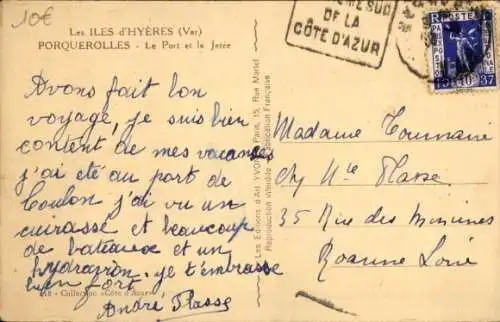 10€
Les ILES d'HYÈRES (Var)
PORQUEROLLES - Le Port et la Jetée
SUD
DE LA
CÔTE D'AZUR
POSTE
37
Avons fait bon
voyage, je suis bien
content de mes vacances
j'ai été au port de
Toulon j'ai vu un
cuirassé et beaucoup
de bateaux et un
hydravion. je t'embrasse
bien fort
André Plasse
Collection «Côte d'Azur»
Les Editions d'Art YVON, Paris, 15, Rue Martel
Reproduction interdite Fabrication Française
Madame Toumaire
Chz Mle Plasse
35 Rue des Minimes
Roanne Loire